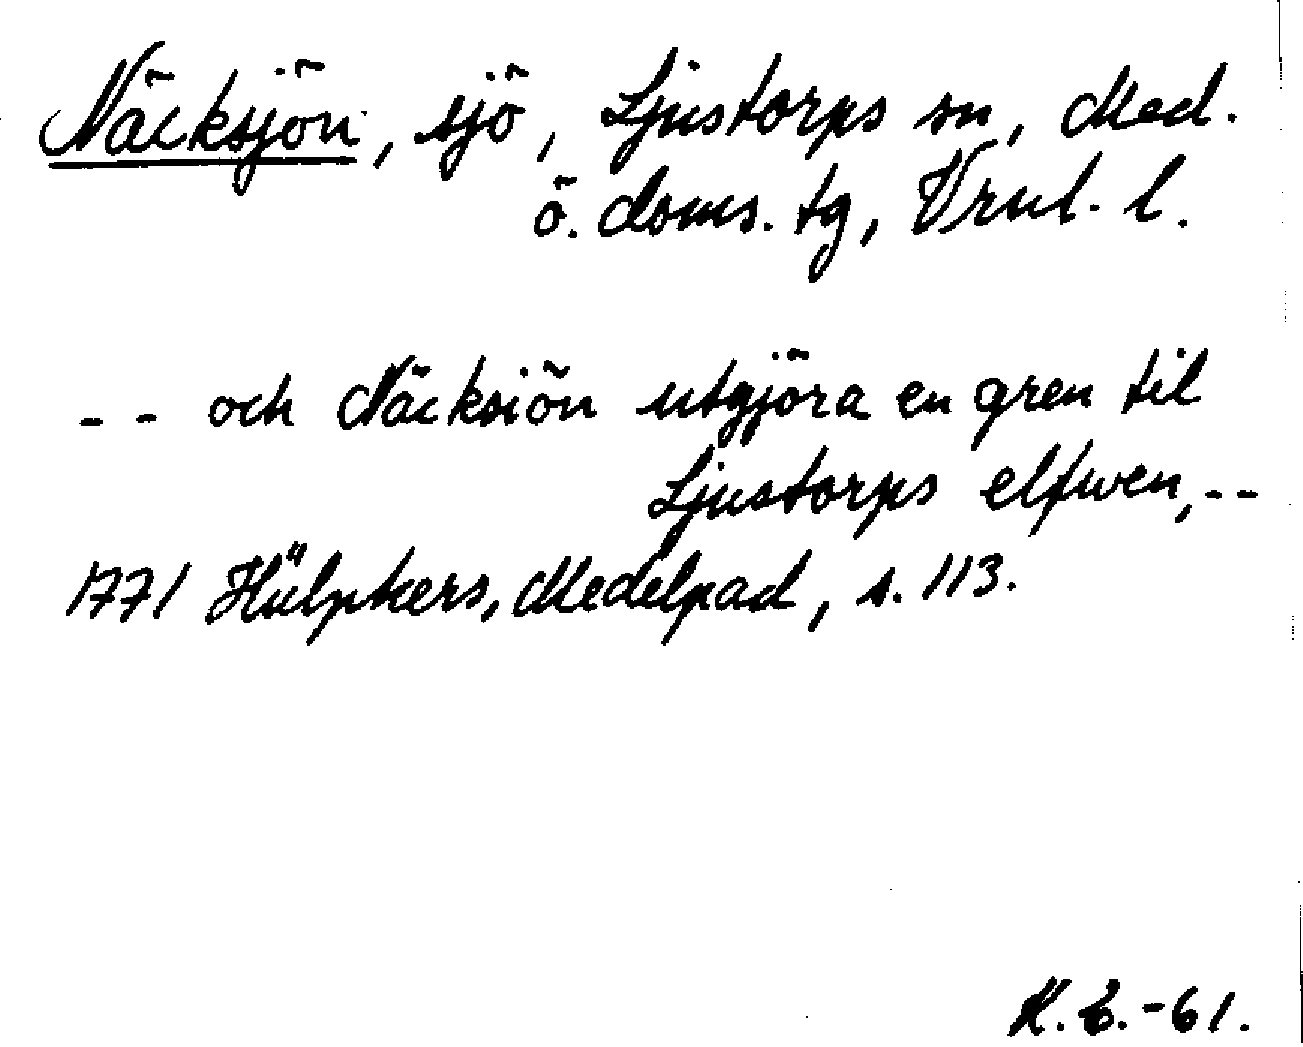 Näcksjön, sjö, Ljustorps sn, Med.
ö. doms. tg, Vrnl. l.
-- och Näcksiön utgjöra en gren til
Ljustorps elfwen,--
1771 Hülphers, Medelpad, s. 113.
-61.